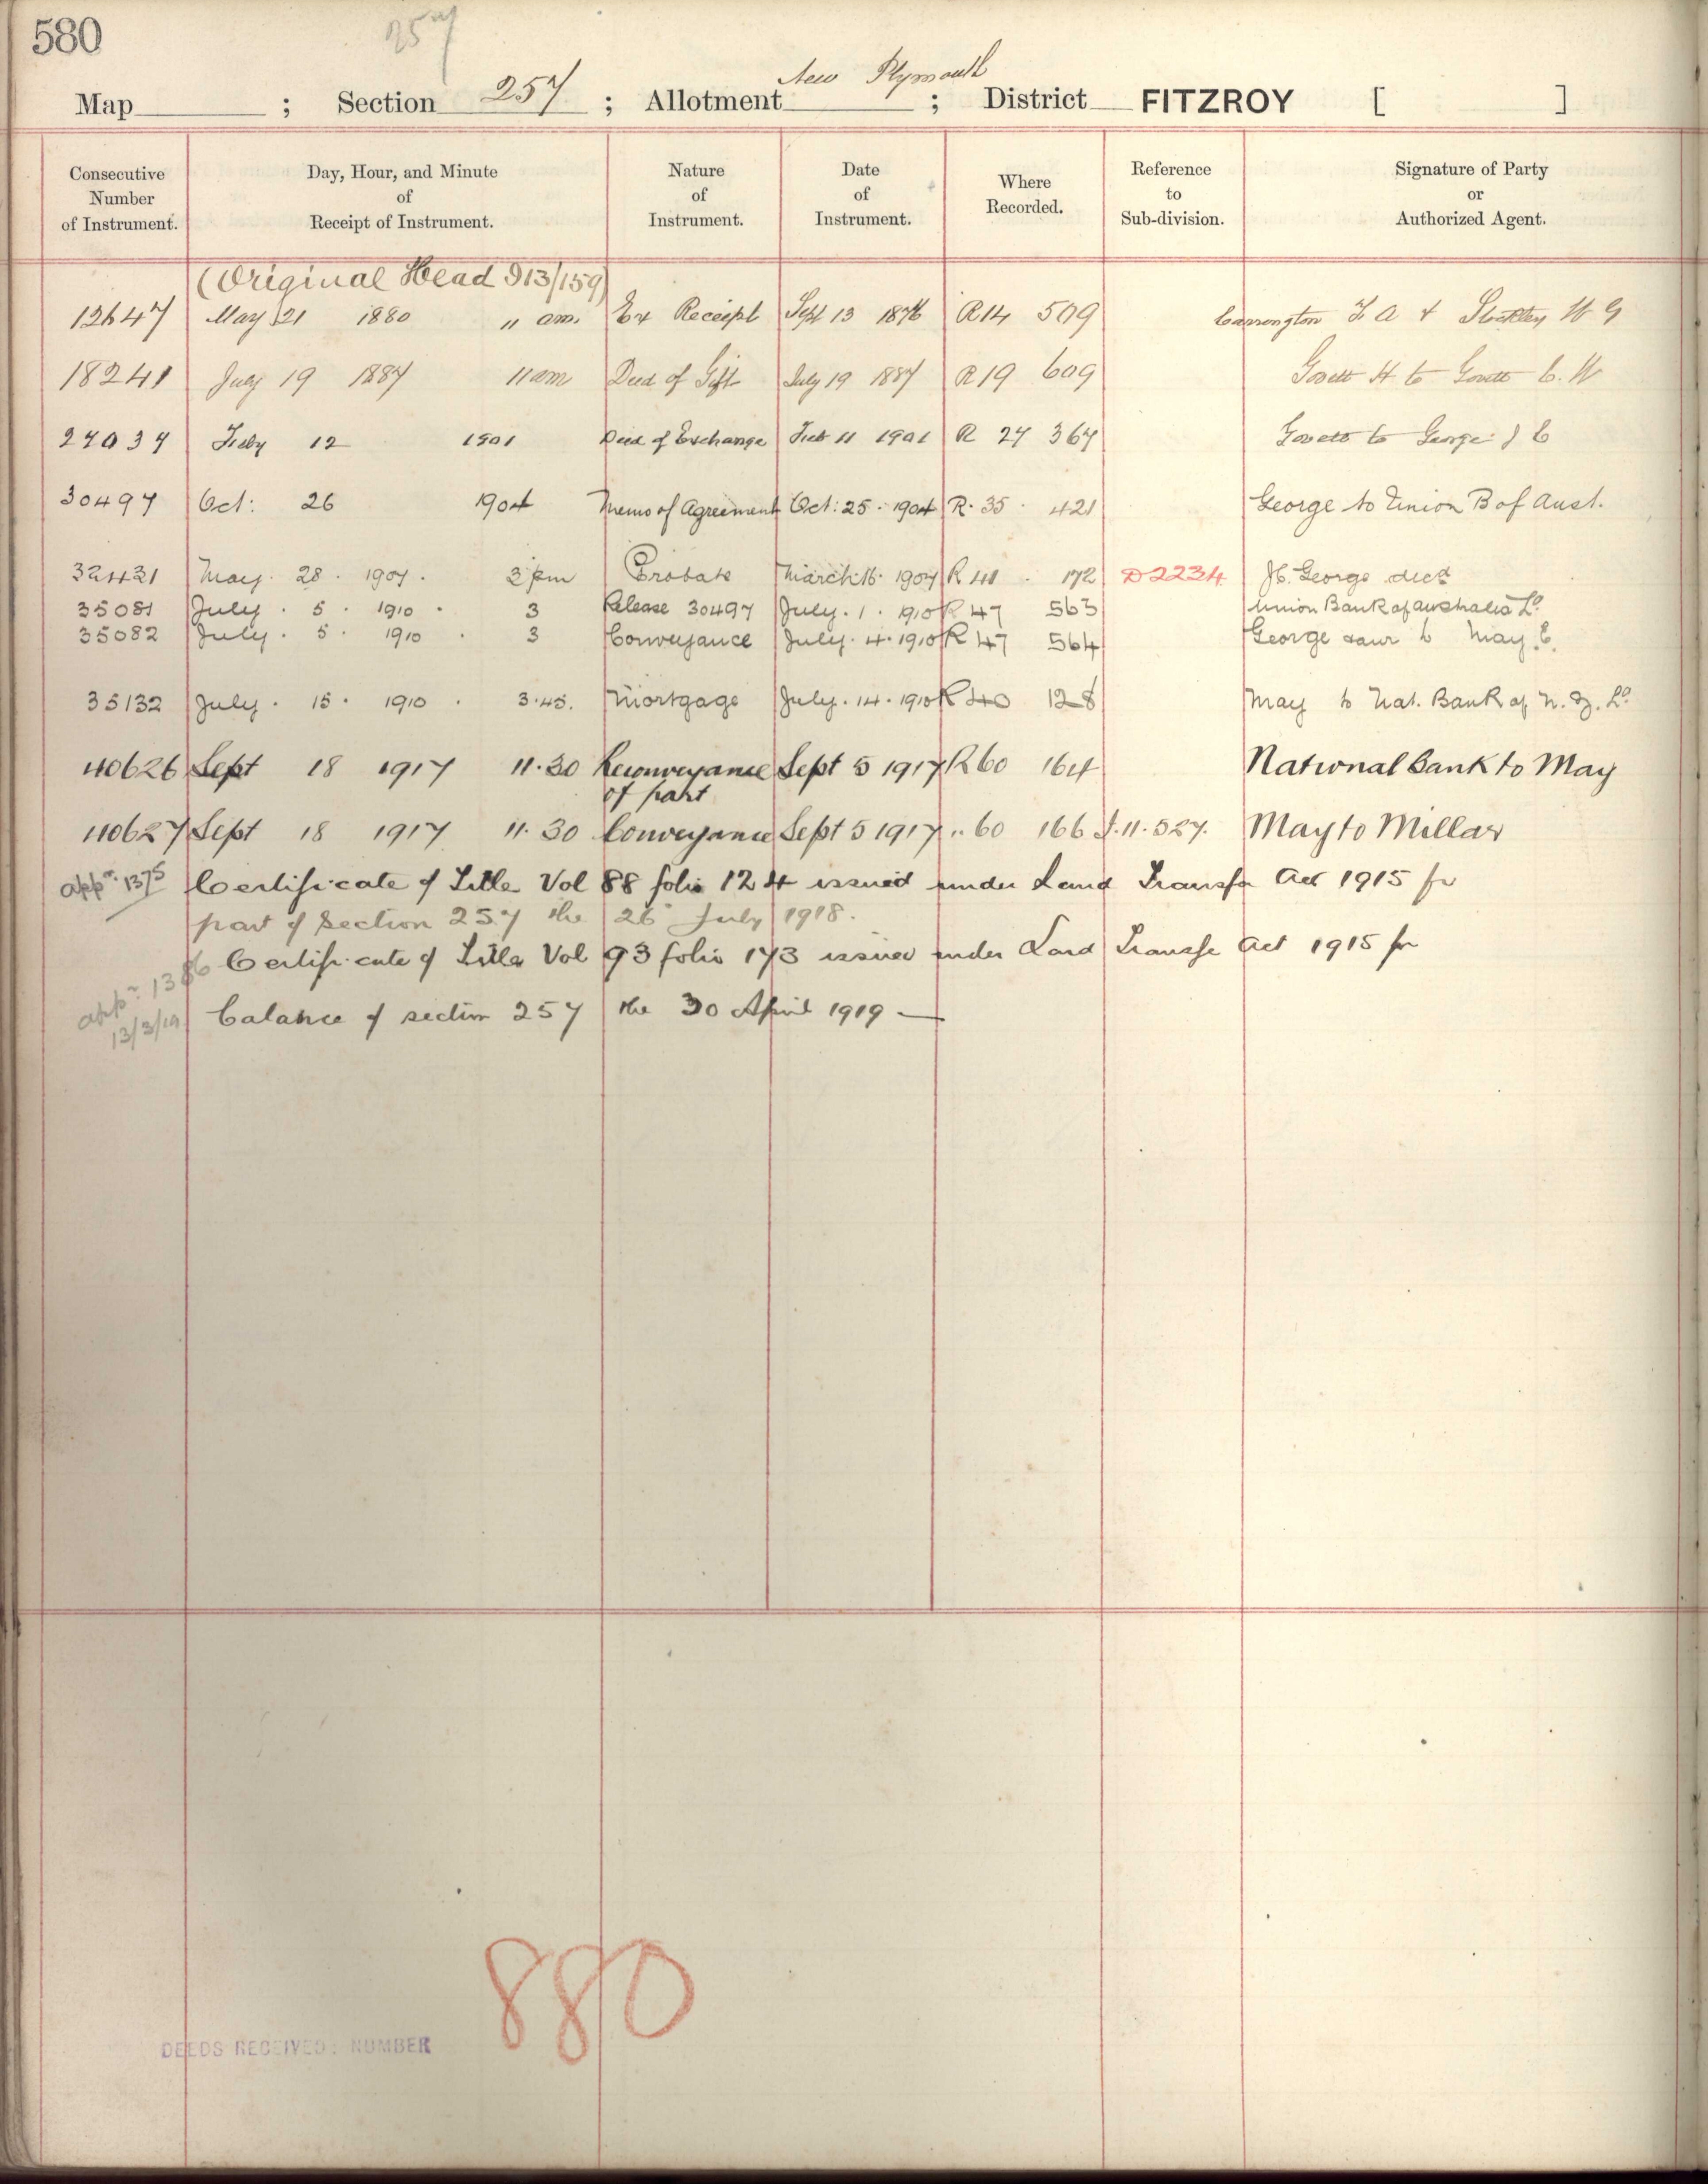 580
257
Map ; Section 257 ; Allotment New Plymouth ; District FITZROY [ ]
Consecutive Number of Instrument. Day, Hour, and Minute of Receipt of Instrument. Nature of Instrument. Date of Instrument. Where Recorded. Reference to Sub-division. Signature of Party or Authorized Agent.
(Original Head 913/159)
12647 May 21 1880 11 am. Ex Receipt Sept 13 1876 R14 509 Carrington F. A & W G
18241 July 19 1887 11 am Deed of Gift July 19 1887 R 19 609 Govett H to Govett C. W
27037 12 1901 Deed of Exchange Feb 11 1901 R 27 367 Govett to George J C
30497 Oct: 26 1904 Memo of Agreement Oct: 25. 1904 R. 35. 421 George to Union B of Aust.
32421 May. 28. 1907. 3 pm Probate March 16. 1907 R 41. 172 D2234 George decd
35081 July. 5. 1910. 3 Release 30497 July. 1. 1910 R 47 563 Union Bank of Australia Ld.
35082 July. 5. 1910. 3 Conveyance July. 4. 1910 R 47 564 George to May. C.
35132 July. 15. 1910. 3.45. Mortgage July. 14. 1910 R 40 128 May to Nat. Bank of N. Z. Ld.
40626 Sept 18 1917 11.30 Reconveyance of part Sept 5 1917 R 60 164 National Bank to May
40627 Sept 18 1917 11.30 Conveyance Sept 5 1917 " 60 166 I. 11. 527. May to Millar
appn. 1375 Certificate of Title Vol 88 folio 124 issued under Land Transfer Act 1915 for
part of Section 257 the 26 July 1918.
appn. 1386 Certificate of Title Vol 93 folio 173 issued under Land Transfer Act 1915 for
13/3/19 balance of section 257 the 30 April 1919 —
880
DEEDS RECEIVED: NUMBER